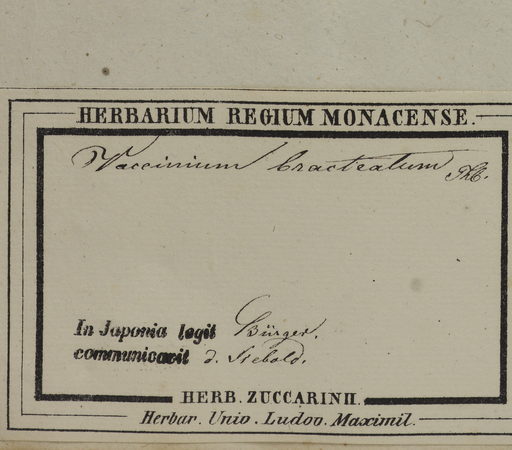 HERBARIUM REGIUM MONACENSE.
Vaccinium bracteatum Thb.
In Japonia legit Bürger.
communicavit d. Siebold.
HERB. ZUCCARINII.
Herbar. Univ. Ludov. Maximil.